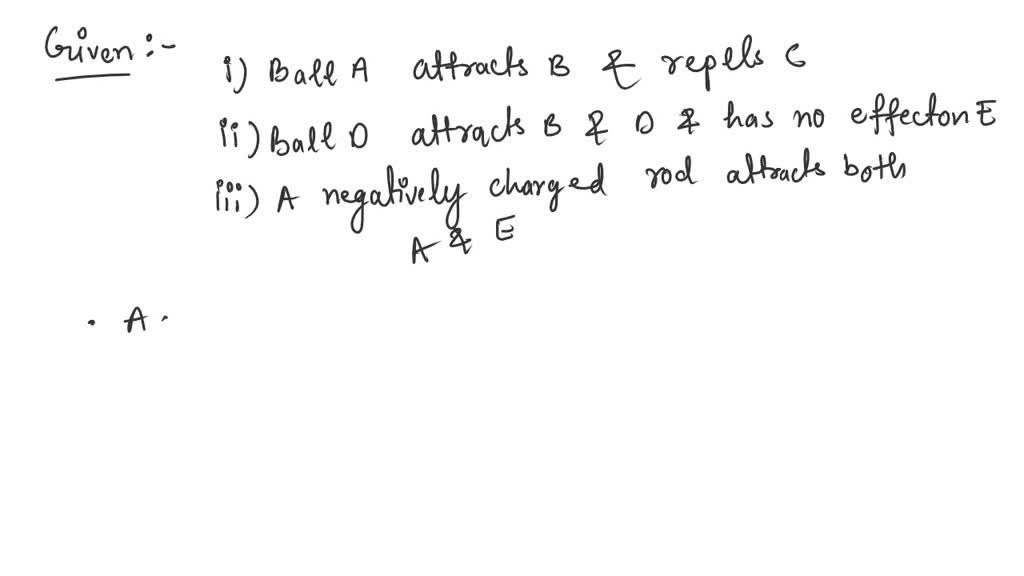 Given :-
i) Ball A attracts B & repels C
ii) Ball D attracts B & D & has no effect on E
iii) A negatively charged rod attracts both
A & E
. A .